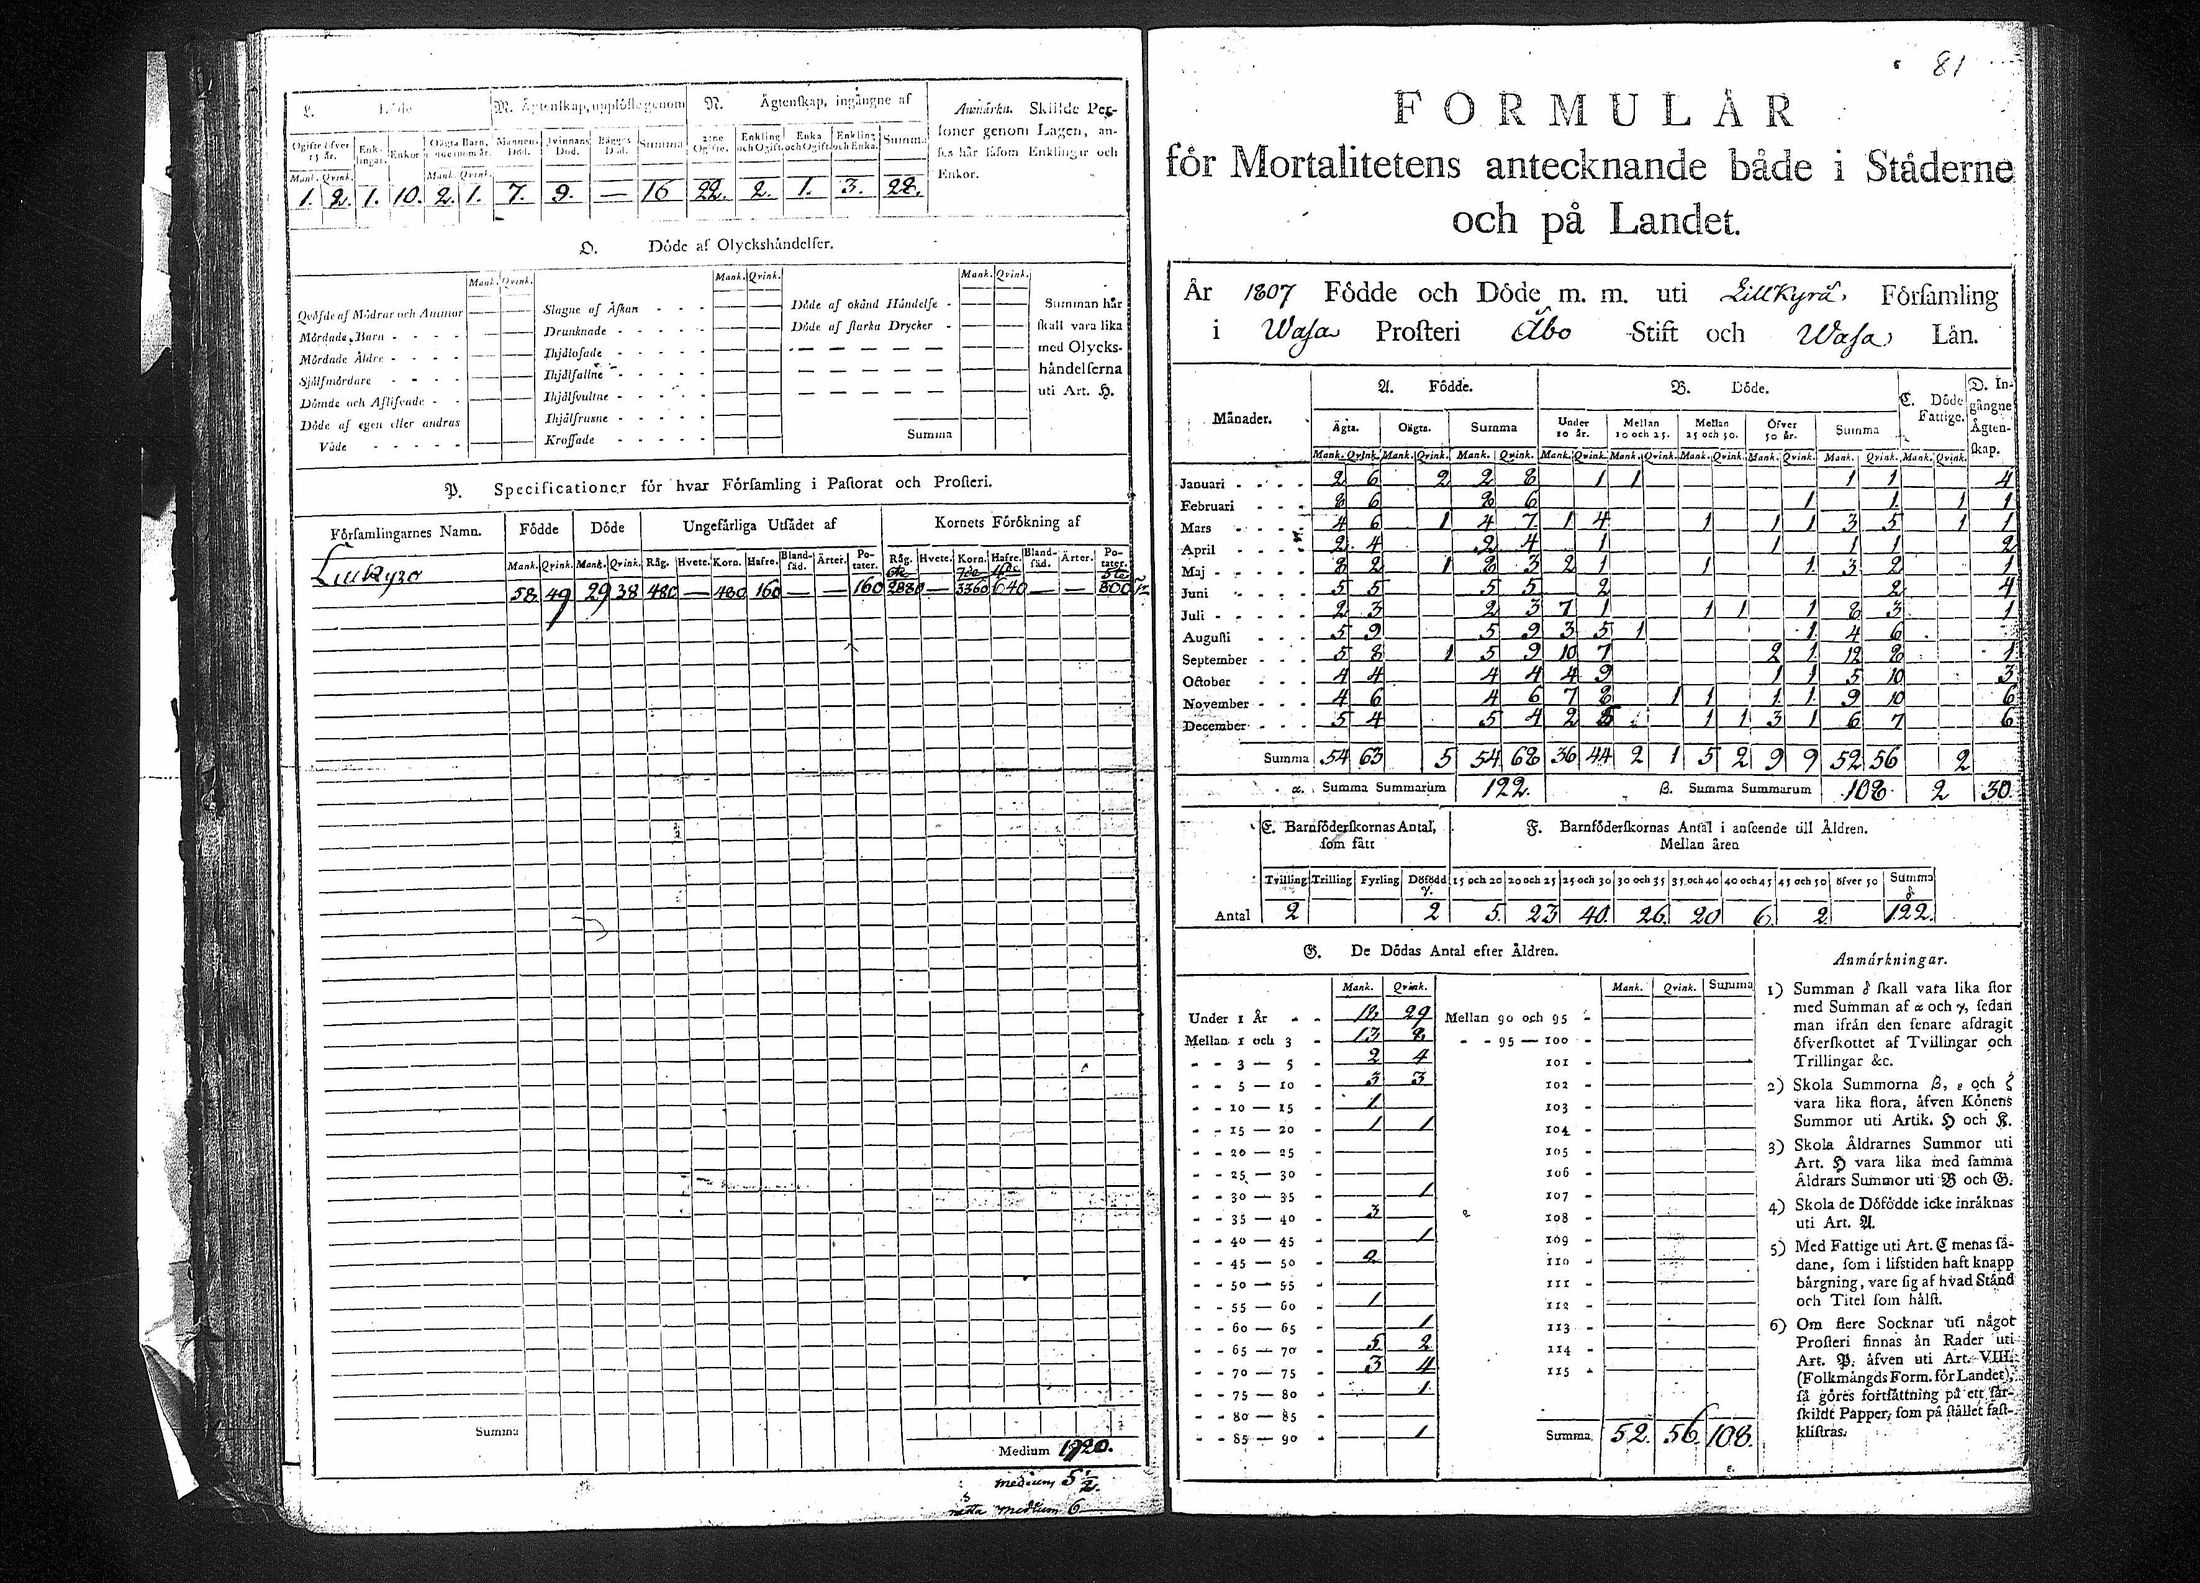 L. Döde
M. Ägtenskap, upplöste genom
N. Ägtenskap, ingångne af
Anmärkn. Skillde Personer genom Lagen, an-
ses här såsom Enklingar och
Enkor.
Ogifte öfver 15 år. Enklingar. Enkor Oägta Barn, Mannens Död. Qvinnans Död. Bägges Död. Summa Ogifte. Enkling och Ogift. Enka och Ogift. Enkling och Enka. Summa
Mank. Qvink. Mank. Qvink.
1. 2. 1. 10. 2. 1. 7. 9. — 16 22. 2. 1. 3. 28.
O. Döde af Olyckshändelser.
Mank. Qvink. Mank. Qvink. Mank. Qvink.
Qväfde af Mödrar och Ammor Slagne af Åskan Döde af okänd Händelse Summan här
Mördade Barn Drunknade Döde af starka Drycker skall vara lika
Mördade Äldre Ihjälfrusne med Olycks-
Själfmördare Ihjälfallne händelserna
Dömde och Aflifvade Ihjälsvultne uti Art. H.
Döde af egen eller andras Ihjälfrusne
Våde Krossade Summa
P. Specificationer för hvar Församling i Pastorat och Prosteri.
Församlingarnes Namn. Födde Döde Ungefärliga Utsädet af Kornets Förökning af
Mank. Qvink. Mank. Qvink. Råg. Hvete. Korn. Hafre. Bland-säd. Ärter. Po-tater. Råg. Hvete. Korn. Hafre. Bland-säd. Ärter. Po-tater.
6te 7de 4de 5te
Lillkyro 58 49 29 38 480 — 480 160 — — 160 2880 — 3360 640 — — 800
Summa
Medium 1920.
medium 5 1/2.
rätta medium 6
81
FORMULÄR
för Mortalitetens antecknande både i Städerne
och på Landet.
År 1807 Födde och Döde m. m. uti Lillkyrå Församling
i Wasa Prosteri Åbo Stift och Wasa Län.
Månader. A. Födde. B. Döde. C. Döde Fattige. D. In-gångne Ägten-skap.
Ägta. Oägta. Summa Under 10 år. Mellan 10 och 25. Mellan 25 och 50. Öfver 50 år. Summa
Mank. Qvink. Mank. Qvink. Mank. Qvink. Mank. Qvink. Mank. Qvink. Mank. Qvink. Mank. Qvink. Mank. Qvink. Mank. Qvink.
Januari 2 6 2 2 8 1 1 1 1 4
Februari 8 6 8 6 1 1 1 1
Mars 4 6 1 4 7 1 4 1 1 1 3 5 1 1
April 2 4 2 4 1 1 1 1 2
Maj 8 2 1 8 3 2 1 1 1 3 2 1
Juni 5 5 5 5 2 2 4
Juli 2 3 2 3 7 1 1 1 8 3 1
Augusti 5 9 5 9 3 5 1 1 4 6
September 5 8 1 5 9 10 7 2 1 12 8 1
October 4 4 4 4 4 9 1 1 5 10 3
November 4 6 4 6 7 8 1 1 1 1 9 10 6
December 5 4 5 4 2 5 1 1 3 1 6 7 6
Summa 54 63 5 54 68 36 44 2 1 5 2 9 9 52 56 2
α. Summa Summarum 122. β. Summa Summarum 108 2 30
E. Barnföderskornas Antal, F. Barnföderskornas Antal i anseende till Åldren.
som fått Mellan åren
Tvilling Trilling Fyrling Döfödd γ. 15 och 20 20 och 25 25 och 30 30 och 35 35 och 40 40 och 45 45 och 50 öfver 50 Summa δ
Antal 2 2 5. 23 40. 26. 20 6. 2. 122.
G. De Dödas Antal efter Åldren.
Mank. Qvink. Mank. Qvink. Summa
Under 1 År 18 29 Mellan 90 och 95
Mellan 1 och 3 13 8 95 — 100
3 — 5 2 4 101
5 — 10 3 3 102
10 — 15 1 103
15 — 20 1 1 104
20 — 25 105
25 — 30 106
30 — 35 1 107
35 — 40 3 108
40 — 45 1 109
45 — 50 2 110
50 — 55 111
55 — 60 1 112
60 — 65 1 113
65 — 70 5 2 114
70 — 75 3 4 115
75 — 80 1
80 — 85
85 — 90 1 Summa 52. 56. 108.
ε.
Anmärkningar.
1) Summan δ skall vara lika stor
med Summan af α och γ, sedan
man ifrån den senare afdragit
öfverskottet af Tvillingar och
Trillingar &c.
2) Skola Summorna β, ε och ζ
vara lika stora, äfven Könens
Summor uti Artik. H och K.
3) Skola Åldrarnes Summor uti
Art. H vara lika med samma
Åldrars Summor uti B och G.
4) Skola de Döfödde icke inräknas
uti Art. A.
5) Med Fattige uti Art. C menas så-
dane, som i lifstiden haft knapp
bärgning, vare sig af hvad Stånd
och Titel som hälst.
6) Om flere Socknar uti något
Prosteri finnas än Rader uti
Art. P. äfven uti Art. VIII.
(Folkmängds Form. för Landet),
så göres fortsättning på ett sär-
skildt Papper, som på stället fast-
klistras.